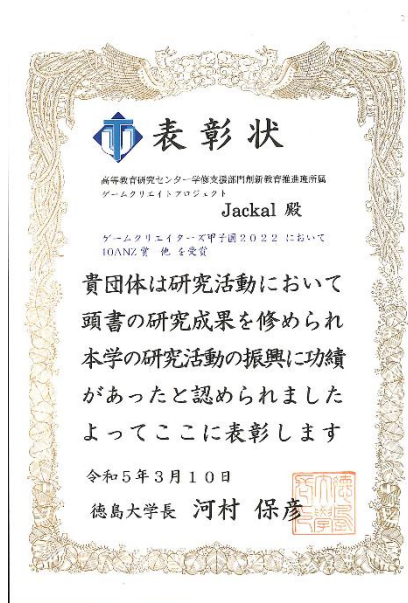 表彰状
高等教育研究センター学修支援部門創新教育推進班所属
ゲームクリエイトプロジェクト
Jackal 殿
ゲームクリエイターズ甲子園2022 において
10ANZ賞 他 を受賞
貴団体は研究活動において
頭書の研究成果を修められ
本学の研究活動の振興に功績
があったと認められました
よってここに表彰します
令和5年3月10日
徳島大学長 河村 保彦